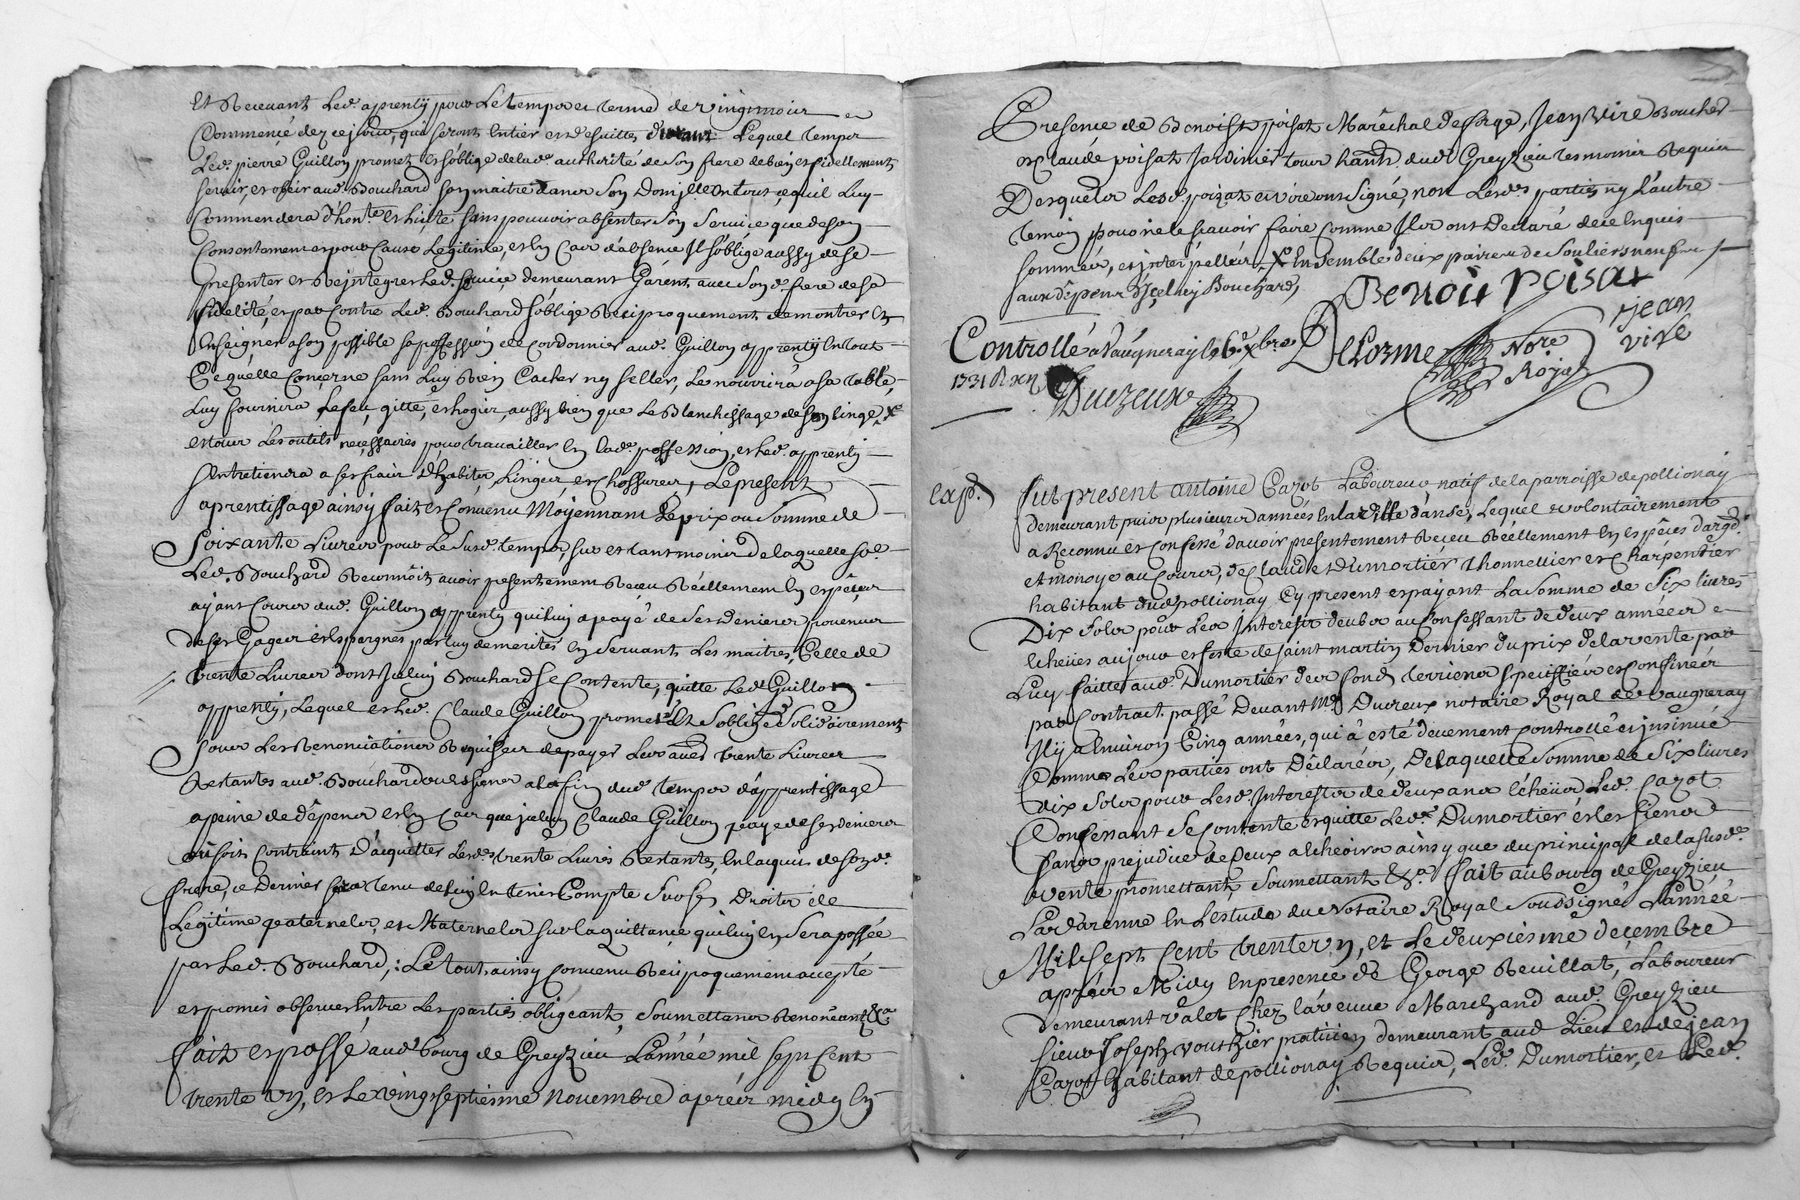 Et Recevant Led. aprentij pour Le temps et terme de vingt mois
Commencé dez ce jour, qui seront entier et de suitte, durant Lequel temps
Led. pierre Guillon promet et s'oblige de lad. authorité de son frere de bien et fidellement
servir, et obeir aud. Bouchard son maitre dans son Domjlle en tout ce qu'il Luy
Commendera d'honte et licite sans pouvoir absenter son service que de son
Consentement et pour Cause Legitime, et En Cas d'absence Jl s'oblige aussy de se
presenter et Reintegrer Led. service demeurant Garent avec Sond. frere de sa
fidelité, et par Contre Led. Bouchard s'oblige Reciproquement de montrer et
Enseigner a son possible sa possession de Cordonnier aud. Guillon apprentij En tout
Ce qu'elle Concerne sans Luy Rien Cacher ny seller, Le nourrira a sa table,
Luy fournira Le feu, gitte, et hogis, aussy bien que Le Blanchissage de son linge
et tous Les outils necessaires pour travailler En lad. possession, et Led. apprentj
s'entretiendra a ses frais d'habits, Linges et Chossures, Le present
aprentissage ainsy fait et Convenu Moyennant Le prix ou Somme de
Soixante Livres pour Le susd. temps, sur et tant moins de laquelle so.e
Led. Bouchard Reconnoit avoir presentement Receu Réellement En especes
ayant Cours dud. Guillon apprenty qui luy a payé de ses Deniers provenus
de ses Gages et Espargnes par luy demerités En servant Les maitres, Celle de
trente Livres dont Jceluy Bouchard se Contente, quitte Led. Guillon
apprenty, Lequel et Led. Claude Guillon promet et s'oblige Solidairement
sous Les Renonciations Requises de payer Lesd. trente Livres
Restantes aud. Bouchard ou es siens a la fin dud. temps d'apprentissage
a peine de dépens et En Cas que jceluy Claude Guillon paye de ses deniers
ou soit Contraint d'acquitter Lesd. trente Livres Restantes, En l'acquis de sond.
frere, ce Dernier sera tenu de luy En tenir Compte sur ses Droits de
Legitime paternels, et Maternels sur la quittance qui luy En sera passée
par Led. Bouchard, : Le tout ainsy Convenu Reciproquement accepté
et promis observer Entre Les parties obligeant, Soumettans Renonceant &a
fait et passé aud. bourg de Greyzieu L'année mil sept Cent
trente un, et Le vingt septiesme novembre après midy En
Presence de Benoist poisat Maréchal de forge, Jean Viré Boucher
et Claude poisat Jardinier tous hants dud. Greyzieu tesmoins Requis
Desquels Lesd. poizat et viré ont Signé, non Lesd. parties ny L'autre
temoin pour ne le sçavoir faire Comme Jls ont Declaré de ce Enquis
sommés, et jnterpellés, Ensemble deux paires de Souliers neufs
aux dépens d'jcelluy Bouchard
Benoit Poisat
Jean
viré
Controllé a Vaugneray le 6.e xbre
1731
Delorme
Nore
Royal
Ducreux
Cap.
fut present antoine Cazot Laboureur natif de la parroisse de pollionay
demeurant puis plusieurs années En la ville d'anse, Lequel volontairement
a Reconnu et Confessé d'avoir presentement Receu Réellement En espéces d'argd.
et monoye au Cours, de Claude Dumortier thonnellier et Charpentier
habitant dud. pollionay Cy present et payant La Somme de Six livres
Dix Sols pour Les Interests deubs au Confessant de deux années
Echeües au jour et feste de saint martin Dernier du prix de la vente par
Luy faitte aud. Dumortier des fonds terriens speciffiés et Confinés
par Contract passé Devant Me Ducreux notaire Royal de Vaugneray
Il y a Environ Cinq années, qui a esté deuement controllé et insinué
Comme Les parties ont Déclarés, De laquelle Somme de Six livres
dix Sols pour Lesd. Interests de deux ans Echeüs Led. Cazot
Confessant se Contente et quitte Led. Dumortier et les siens
sans prejudice de Ceux a Echeoirs ainsy que du principal de la susd.
vente promettant, Soumettant &a fait au bourg de Greyzieu
La Varenne En L'estude du Notaire Royal Soussigné L'année
Mil sept Cent trente un, et Le deuxiesme decembre
après Midy En presence de George Revillat, Laboureur
demeurant valet chez la veuve Marchand aud. Greyzieu
sieur Joseph vouthier praticien demeurant aud. Lieu et de jean
Cazot habitant de pollionay Requis, Led. Dumortier, et Led.